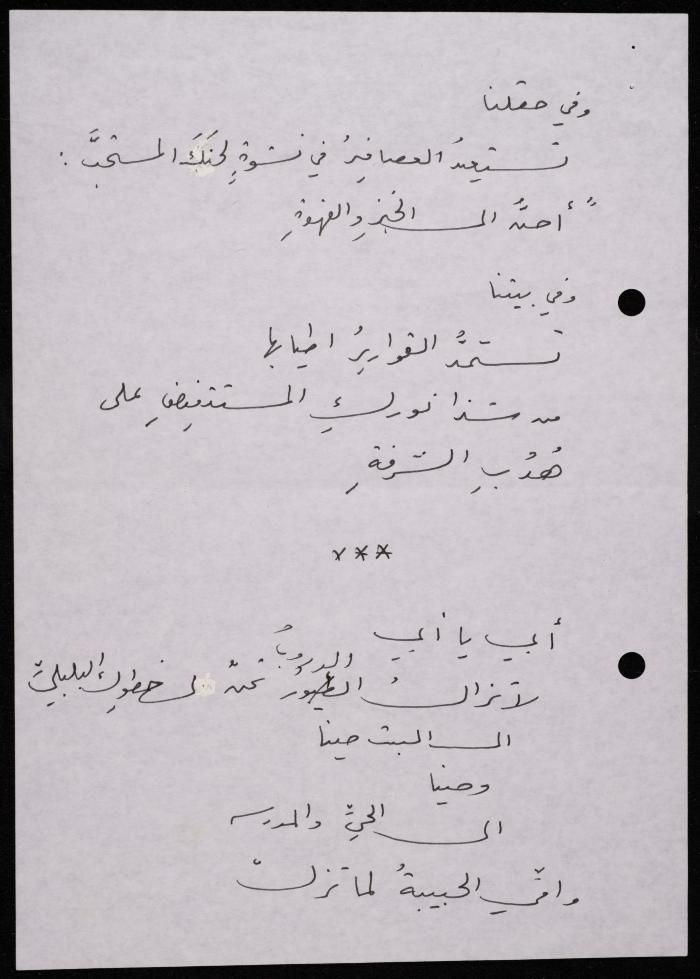 وفي حقلنا
تستعيدُ العصافيرُ في نشوةٍ لحنَكَ المستحبَّ :
"أحنُّ الى الخبزِ والقهوةِ
وفي بيتنا
تستمدُّ القواريرُ اطيابها
من شذا نورِكِ المستفيضِ على
هُدُبِ الشرفةِ
***
أبي يا أبي
الدروبُ
لا تزالُ الطيورُ تحنّ الى خطوِكَ البلبليِّ
الى البيت حينا
وحينا
الى الحيِّ والمدرسه
وامّي الحبيبةُ لما تزلْ